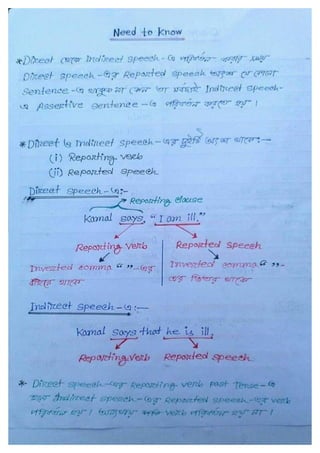 Need to know
*Direct থেকে Indirect speech-এ পরিবর্তন করার সময়
Direct speech-এর Reported speech অংশে যে কোনো
Sentence-এ থাকুক না কেন তা সর্বদাই Indirect speech-
এ Assertive sentence-এ পরিবর্তন করতে হয়।
*Direct ও Indirect speech-এর দুইটি অংশ থাকে:-
(i) Reporting verb
(ii) Reported speech
Direct speech-এ:-
Reporting clause
Kamal says, "I am ill."
Reporting verb Reported speech
Inverted comma " "-এর
বাইরে থাকে
Inverted comma " "-
এর ভিতরে থাকে
Indirect speech-এ:-
Kamal says that he is ill.
Reporting verb Reported speech
* Direct speech-এর Reporting verb past Tense-এ
হলে Indirect speech-এর Reported speech-এর verb
পরিবর্তন হয়। অন্যথায় verb পরিবর্তন হয় না।